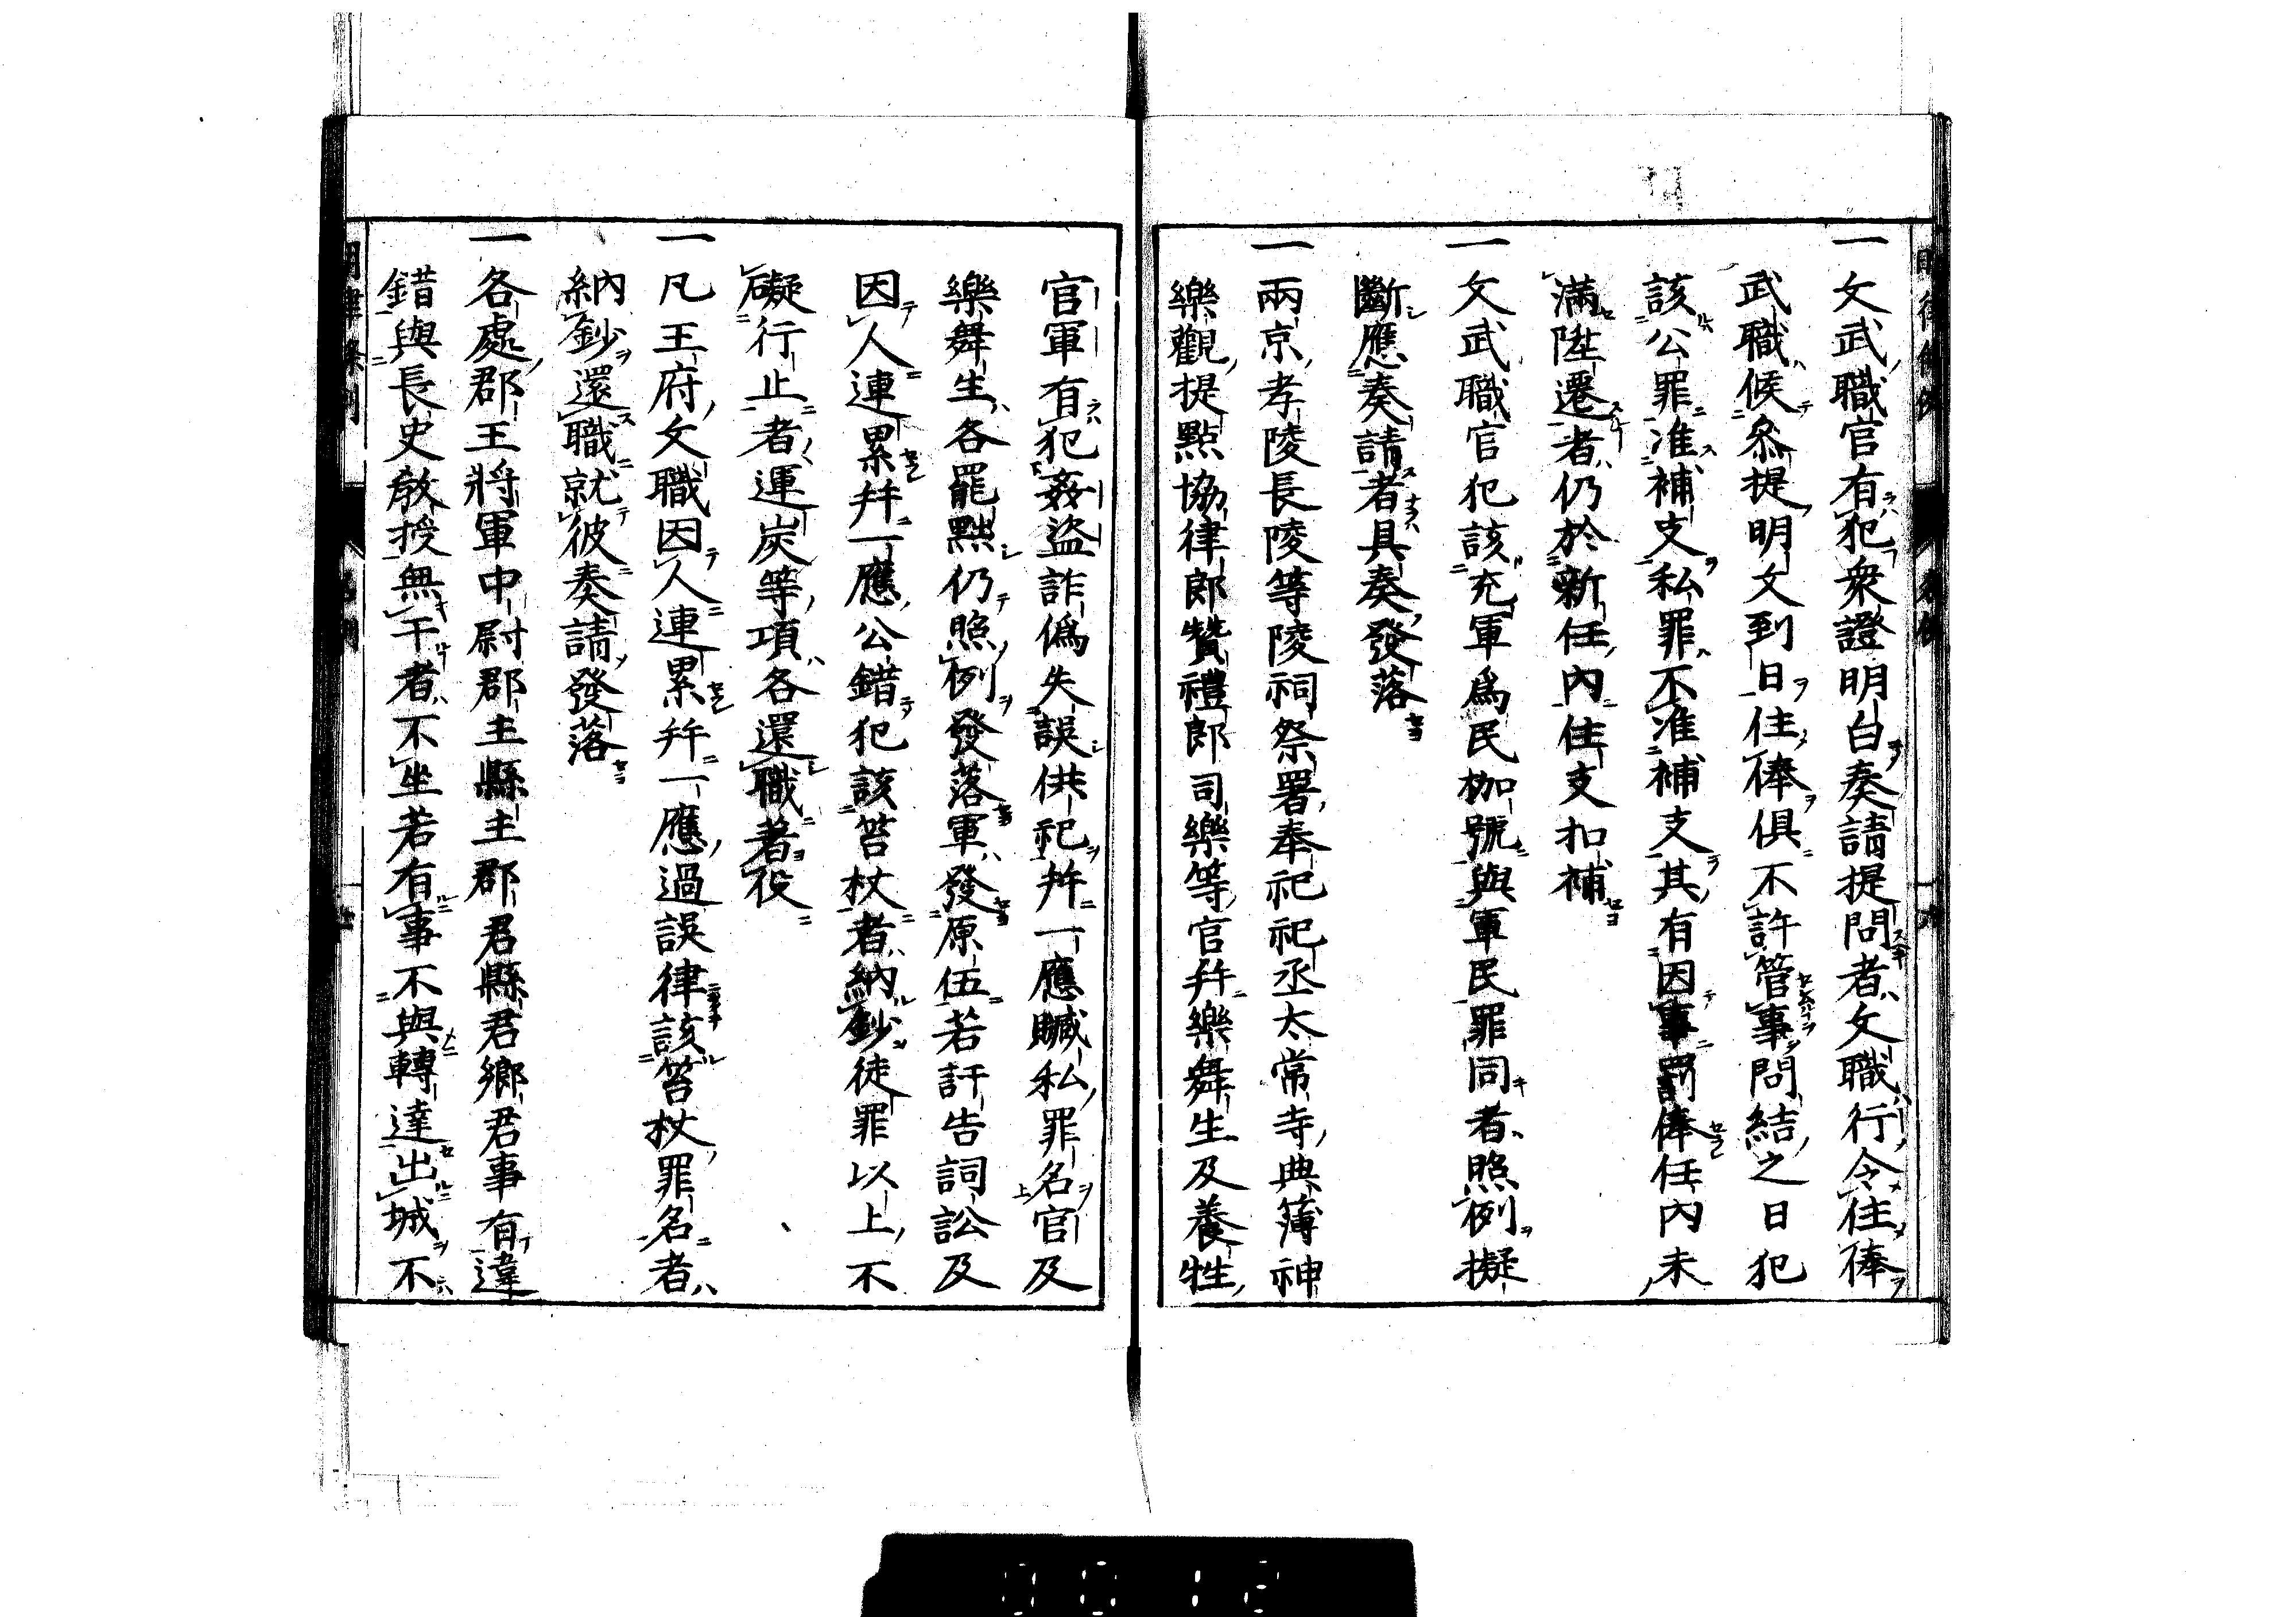 一文武職官有犯衆證明白奏請提問者文職行令住俸
武職候叅提明文到日住俸俱不許管事問結之日犯
該公罪准補支私罪不准補支其有因事罰俸任內未
滿陞遷者仍於新任內住支扣補
一文武職官犯該充軍爲民枷號與軍民罪同者照例擬
斷應奏請者具奏發落
一兩京孝陵長陵等陵祠祭署奉祀祀丞太常寺典簿神
樂觀提點協律郎贊禮郎司樂等官幷樂舞生及養牲
官軍有犯姦盜詐僞失誤供祀幷一應贓私罪名官及
樂舞生各罷黜仍照例發落軍發原伍若訐告詞訟及
因人連累幷一應公錯犯該笞杖者納鈔徒罪以上不
礙行止者運炭等項各還職著役
一凡王府文職因人連累幷一應過誤律該笞杖罪名者
納鈔還職就彼奏請發落
一各處郡王將軍中尉郡主縣主郡君縣君鄉君事有違
錯與長史敎授無干者不坐若有事不與轉達出城不